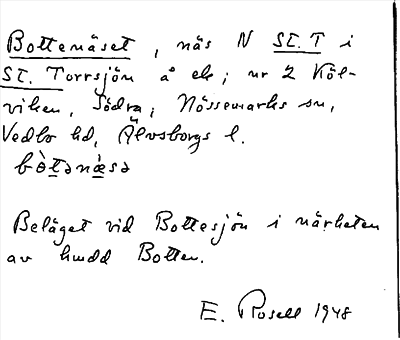 Bottenäset, näs N St. T i
St. Torrsjön å ek; nr 2 Köl-
viken, Södra; Nössemarks sn,
Vedbo hd, Älvsborgs l.
bò̀tənæ̀sə
Beläget vid Bottesjön i närheten
av hmdd Botten.
E. Rosell 1948